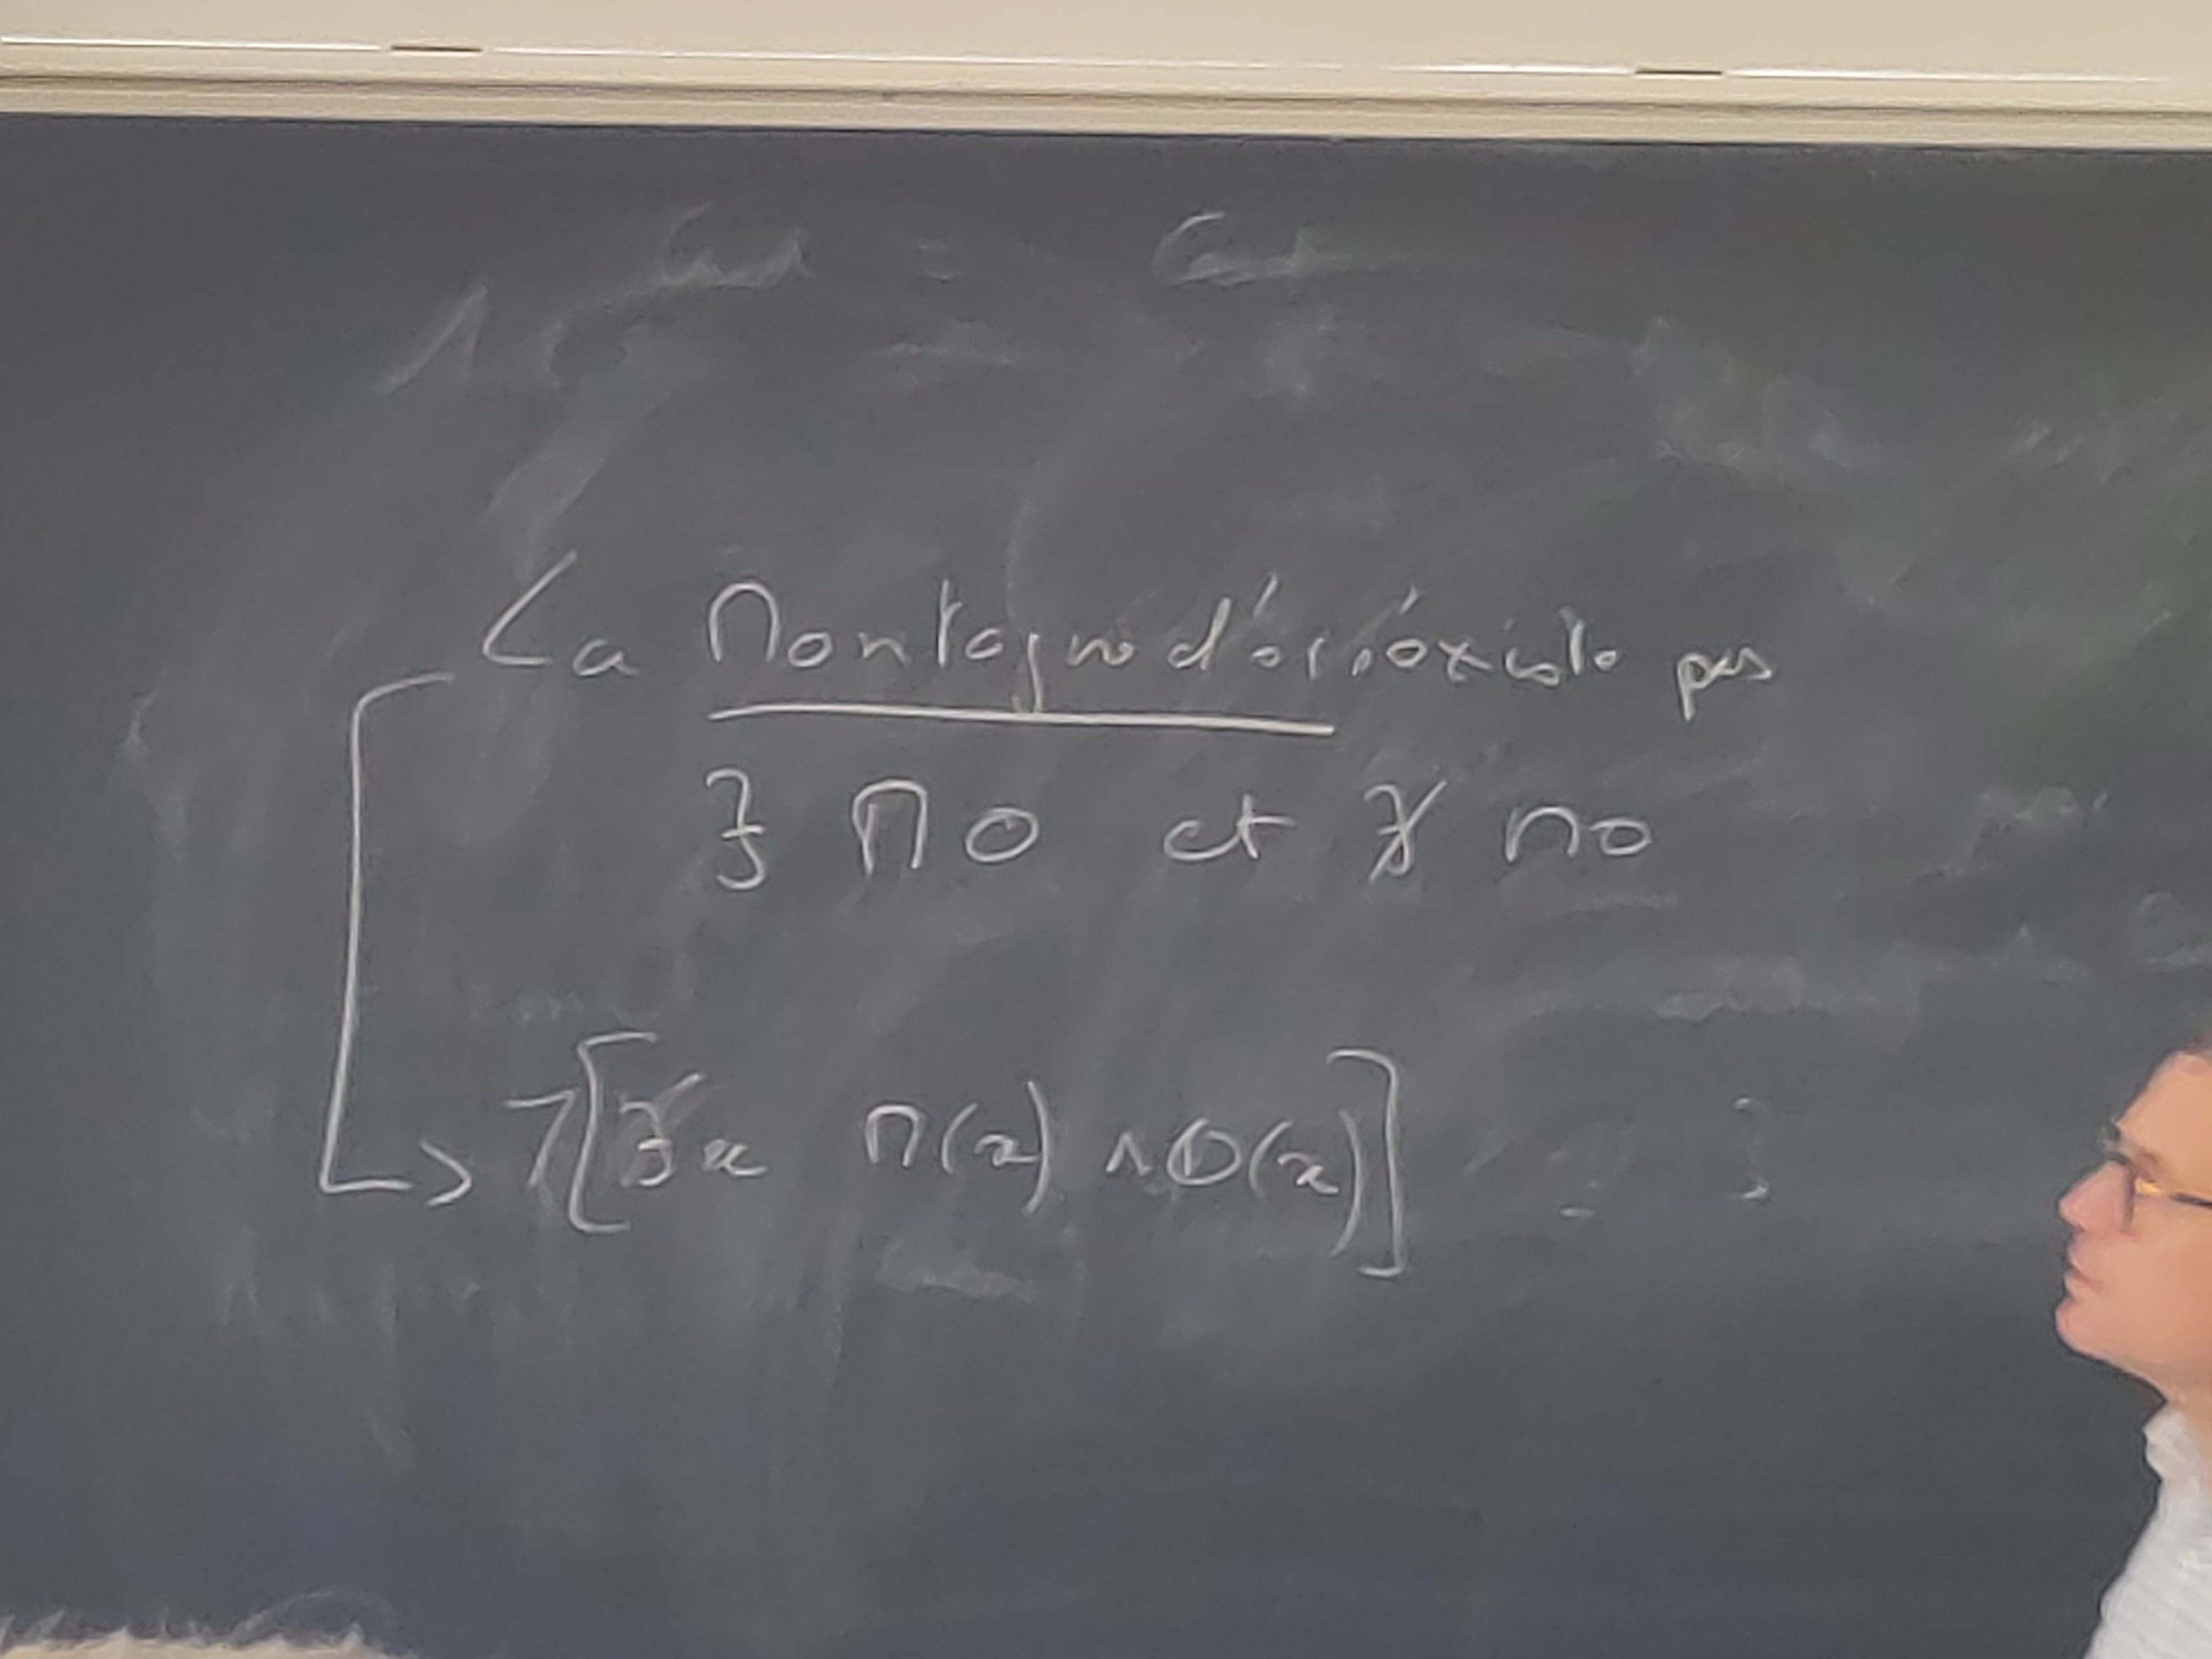 La Montagne d'or n'existe pas
∃ MO et ∄ MO
¬[∃x M(x) ∧ O(x)]